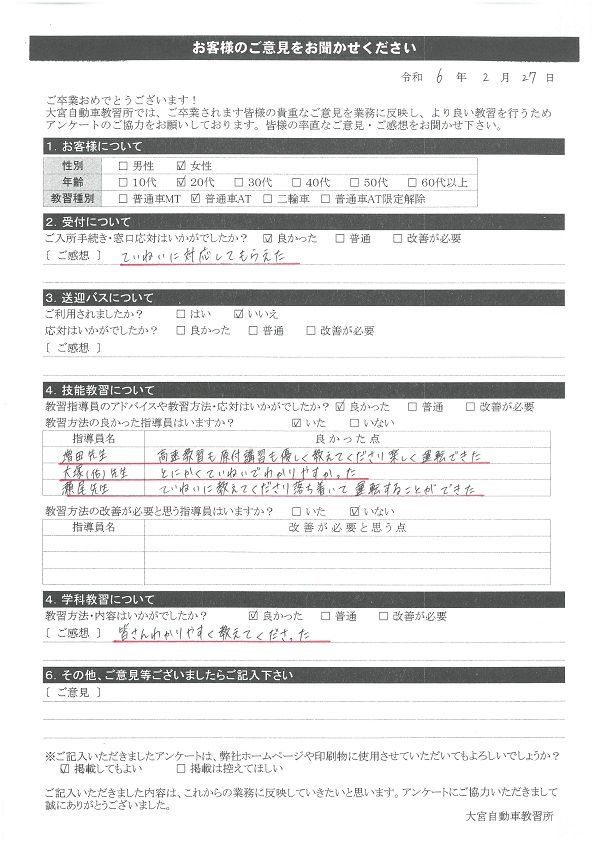 お客様のご意見をお聞かせください
令和 6 年 2 月 27 日
ご卒業おめでとうございます！
大宮自動車教習所では、ご卒業されます皆様の貴重なご意見を業務に反映し、より良い教習を行うため
アンケートのご協力をお願いしております。皆様の率直なご意見・ご感想をお聞かせ下さい。
1. お客様について
性別 □ 男性 ☑ 女性
年齢 □ 10代 ☑ 20代 □ 30代 □ 40代 □ 50代 □ 60代以上
教習種別 □ 普通車MT ☑ 普通車AT □ 二輪車 □ 普通車AT限定解除
2. 受付について
ご入所手続き・窓口応対はいかがでしたか？ ☑ 良かった □ 普通 □ 改善が必要
[ ご感想 ] ていねいに対応してもらえた
3. 送迎バスについて
ご利用されましたか？ □ はい ☑ いいえ
応対はいかがでしたか？ □ 良かった □ 普通 □ 改善が必要
[ ご感想 ]
4. 技能教習について
教習指導員のアドバイスや教習方法・応対はいかがでしたか？ ☑ 良かった □ 普通 □ 改善が必要
教習方法の良かった指導員はいますか？ ☑ いた □ いない
指導員名 良かった点
増田先生 高速教習も原付講習も優しく教えてくださり楽しく運転できた
大塚(佑)先生 とにかくていねいでわかりやすかった
瀬尾先生 ていねいに教えてくださり落ち着いて運転することができた
教習方法の改善が必要と思う指導員はいますか？ □ いた ☑ いない
指導員名 改善が必要と思う点
4. 学科教習について
教習方法・内容はいかがでしたか？ ☑ 良かった □ 普通 □ 改善が必要
[ ご感想 ] 皆さんわかりやすく教えてくださった
6. その他、ご意見等ございましたらご記入下さい
[ ご意見 ]
※ご記入いただきましたアンケートは、弊社ホームページや印刷物に使用させていただいてもよろしいでしょうか？
☑ 掲載してもよい □ 掲載は控えてほしい
ご記入いただきました内容は、これからの業務に反映していきたいと思います。アンケートにご協力いただきまして
誠にありがとうございました。
大宮自動車教習所